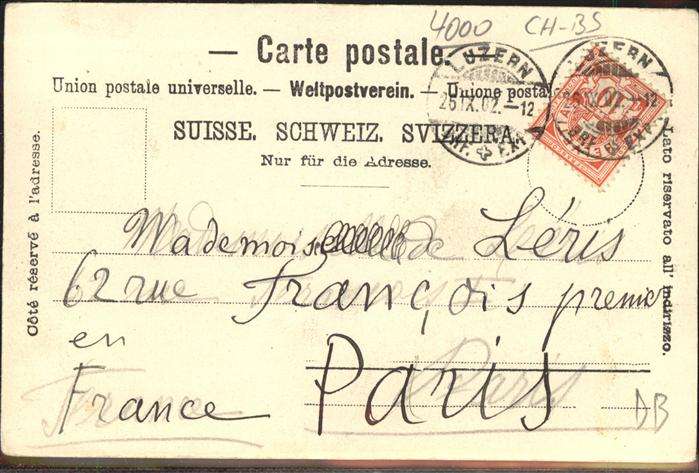 4000 CH-BS
— Carte postale.
Union postale universelle. — Weltpostverein. — Unione postale
SUISSE. SCHWEIZ. SVIZZERA.
Nur für die Adresse.
LUZERN
25.IX.02.–12
BRF. EXP.
LUZERN
25.IX.02.–12
BRF. EXP.
Côté réservé à l'adresse.
Lato riservato all' indirizzo.
Mademoiselle de Léris
62 rue François premier
en Paris
France
DB